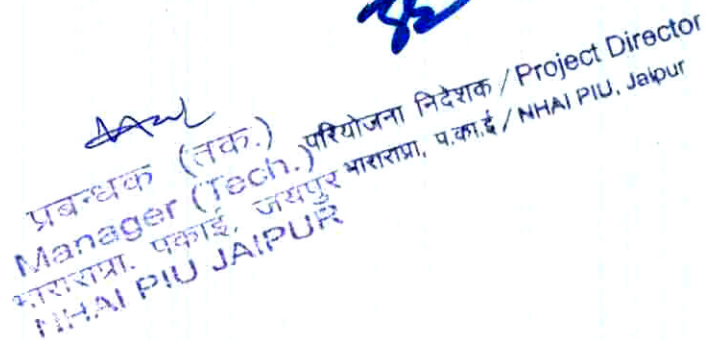 प्रबन्धक (तक.)
Manager (Tech.)
भाराराप्रा. पकाई. जयपुर
NHAI PIU JAIPUR
परियोजना निदेशक / Project Director
भाराराप्रा, प.का.ई / NHAI PIU, Jaipur